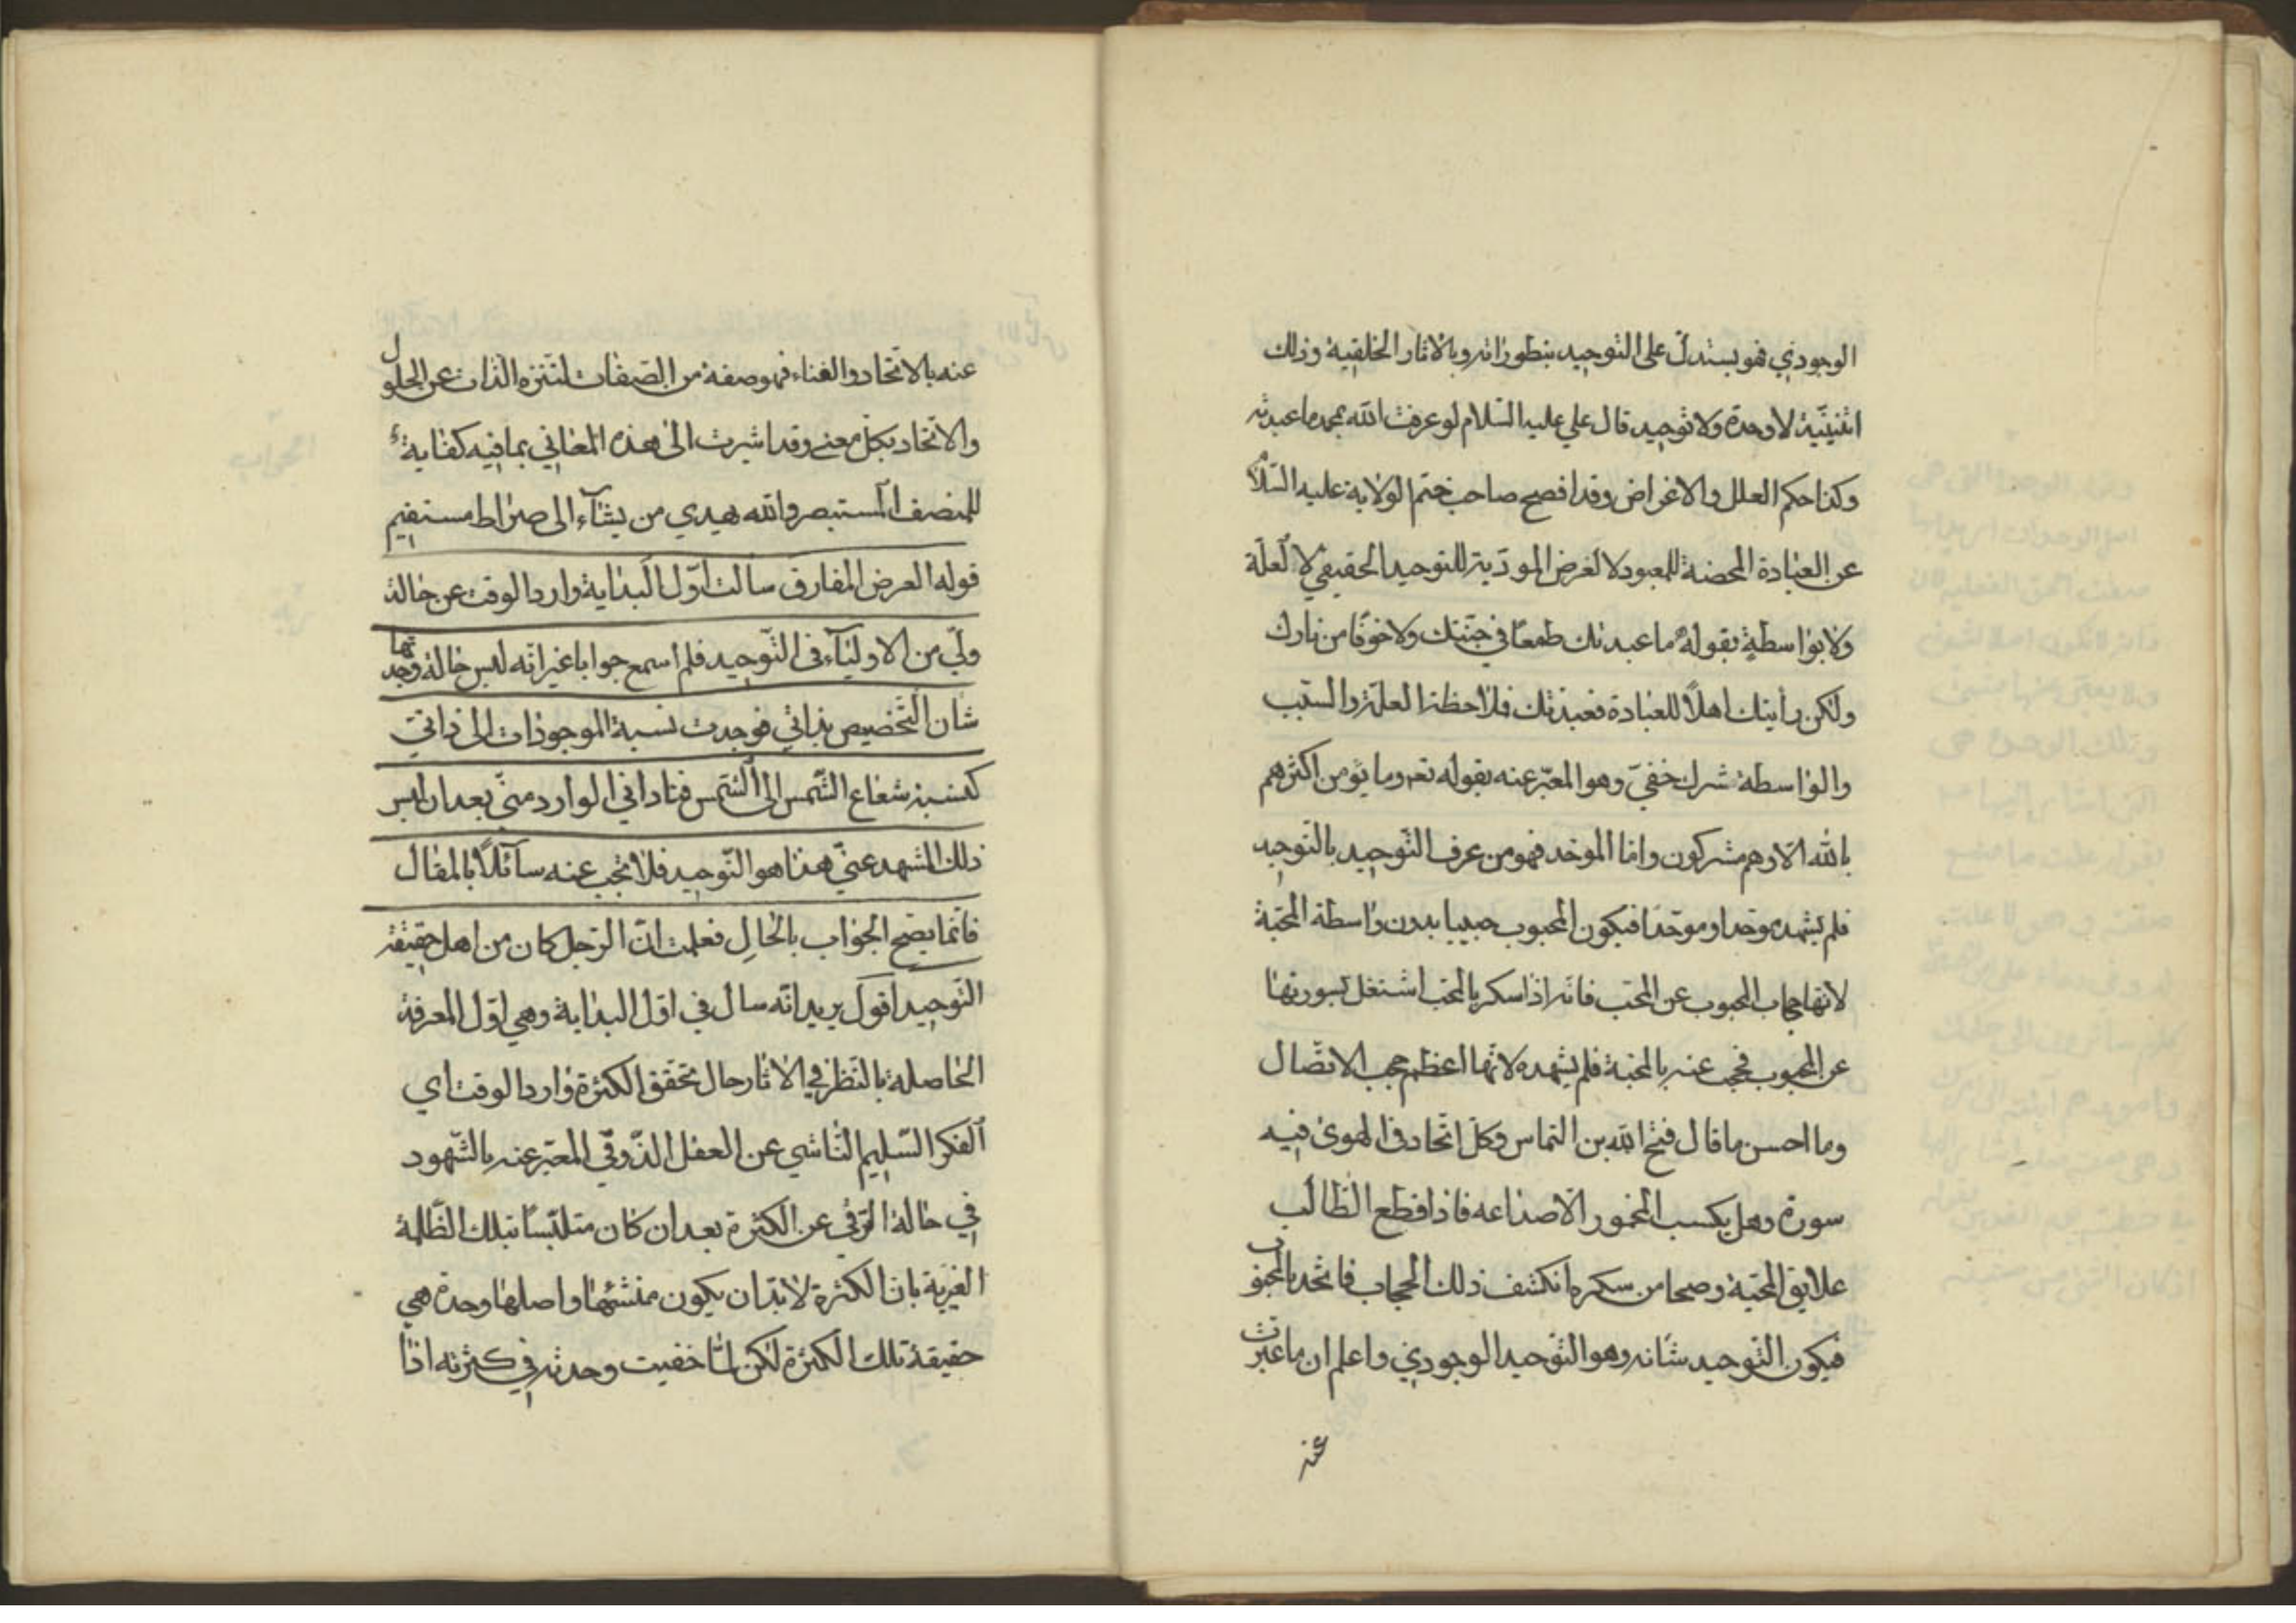 الوجودي فهو يستدل على التوحيد بتطوراته وبالاثار الخلقية وذلك
اثنينيّة لا وحدة ولا توحيد قال علي عليه السّلام لو عرفت الله بمحمد ما عبدته
وكذا حكم العلل والاغراض وقد افصح صاحب ختم الولاية عليه السّلام
عن العبادة المحضة للمعبود لا لغرض المودّية للتوحيد الحقيقي لا لعلّة
ولا بواسطة بقوله ما عبدتك طمعًا في جنّتك ولا خوفًا من نارك
ولكن رأيتك اهلًا للعبادة فعبدتك فلاحظة العلّة والسّبب
والواسطة شرك خفيّ وهو المعبّر عنه بقوله تعه وما يؤمن اكثرهم
بالله الّا وهم مشركون وامّا الموحّد فهو من عرف التّوحيد بالتّوحيد
فلم يشهد موحّدا وموحّدًا فيكون المحبوب حبيبا بدون واسطة المحبّة
لانّها حجاب المحبوب عن المحبّ فانّه اذا سكر بالمحبّ اشتغل بسورتها
عن المحبوب فحجب عنه بالمحبّة فلم يشهده لانّها اعظم حجب الاتّصال
وما احسن ما قال فتح الله بن النّحاس وكلّ اتّحاد في الهوى فيه
سورة وهل يكسب المخمور الّا صداعه فاذا قطع الطّالب
علايق المحبّة وصحا من سكره انكشف ذلك الحجاب فاتّحد بالمحبوب
فيكون التّوحيد شانه وهو التّوحيد الوجودي واعلم ان ما عبّرت
عنه
عنه بالاتّحاد والفناء فهو صفة من الصّفات لتنزه الذّات عن الحلول
والاتّحاد بكلّ معنى وقد اشرت الى هذه المعاني بما فيه كفاية
للمنصف المستبصر والله يهدي من يشآء الى صراط مستقيم
قوله العرض المفارق سالت اوّل البداية وارد الوقت عن حالة
وليّ من الاوليآء في التّوحيد فلم اسمع جوابا غير انّه لبس حالة وجّهها
شان التّخصيص بذاتي فوجدت نسبة الموجودات الى ذاتي
كنسبة شعاع الشّمس الى الشّمس فناداني الوارد منّي بعد ان لبس
ذلك المشهد عنّي هذا هو التّوحيد فلا تجب عنه سآئلًا بالمقال
فانّما يصح الجواب بالحال فعلمت انّ الرّجل كان من اهل حقيقة
التّوحيد اقول يريد انّه سال في اوّل البداية وهي اوّل المعرفة
الحاصلة بالنّظر في الاثار حال تحقّق الكثرة وارد الوقت اي
الفكر السّليم النّاشي عن العقل الذّوقي المعبّر عنه بالشّهود
في حالة التّرقي عن الكثرة بعد ان كان متلبّسًا بتلك الظّلمة
الغيرية بانّ الكثرة لا بدّ ان يكون منشئها واصلها وحدة هي
حقيقة تلك الكثرة لكن لمّا خفيت وحدته في كثرته اذا